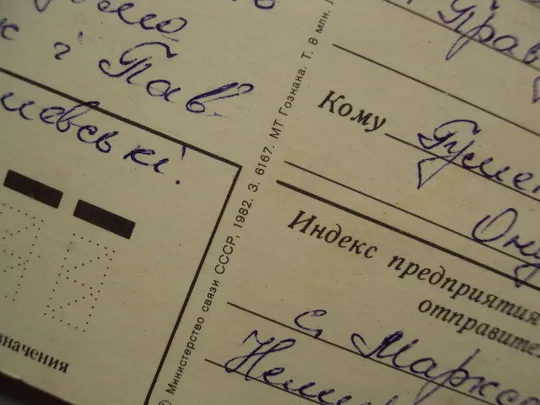 к і Пав.
левські.
начения
© Министерство связи СССР, 1982. З. 6167. МТ Гознака. Т. 8 млн.
Прав
Кому Гумен
Ону
Индекс предприятия
отправите
с. Маркс
Неми